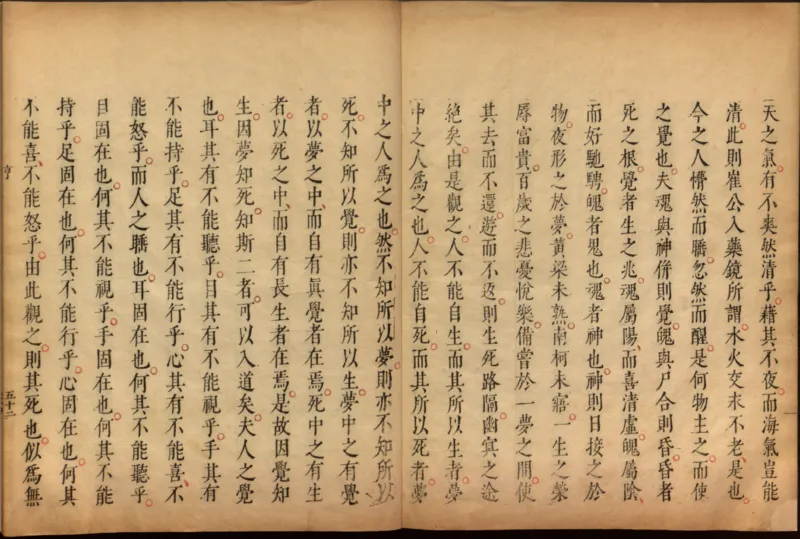 天之氣有不爽然清乎藉其不夜而海氣豈能
清此則崔公入藥鏡所謂水火交末不老是也
今之人懵然而䦧忽然而醒是何物主之而使
之覺也夫魂與神俻則覺魄與尸合則昏昏者
死之根覺者生之兆魂屬陽而喜清虛魄屬陰
而好馳騁魄者鬼也魂者神也神則日接之於
物夜形之於夢黃粱未熟南柯未寤一生之榮
辱富貴百歲之悲憂悅樂備嘗於一夢之間使
其去而不還遊而不返則生死路隔幽冥之途
絶矣由是觀之人不能自生而其所以生者夢
中之人爲之也人不能自死而其所以死者夢
中之人爲之也然不知所以夢則亦不知所以
死不知所以覺則亦不知所以生夢中之有覺
者以夢之中而自有眞覺者在焉死中之有生
者以死之中而自有長生者在焉是故因覺知
生因夢知死知斯二者可以入道矣夫人之覺
也耳其有不能聽乎目其有不能視乎手其有
不能持乎足其有不能行乎心其有不能喜不
能怒乎而人之䦧也耳固在也何其不能聽乎
目固在也何其不能視乎手固在也何其不能
持乎足固在也何其不能行乎心固在也何其
不能喜不能怒乎由此觀之則其死也似爲無
亨
五十二